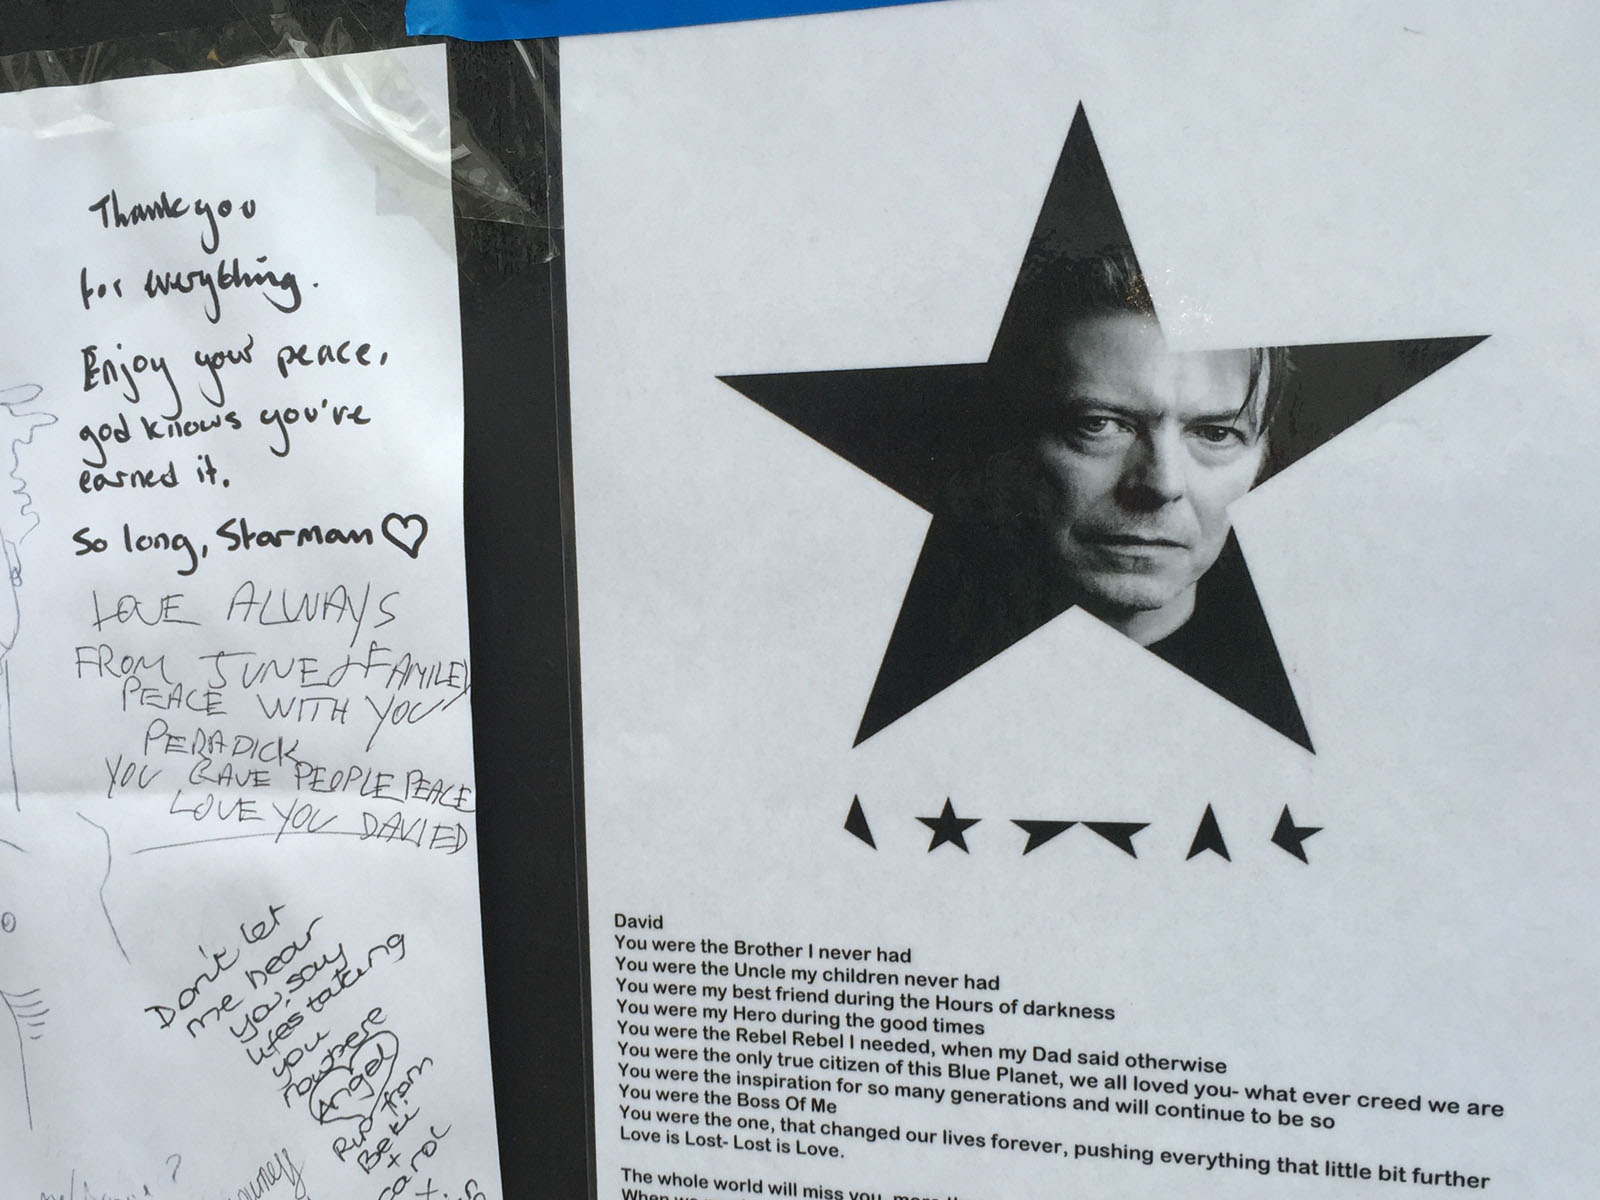 Thank you
for everything.
Enjoy your peace,
god knows you've
earned it.
So long, Starman
LOVE ALWAYS
FROM JUNE & FAMILEY
PEACE WITH YOU
PERADICK
YOU GAVE PEOPLE PEACE
LOVE YOU DAVIED
Don't let
me hear
you, say
lifes taking
you
nowhere
Angel
RIP from
Beki
+
carol
David
You were the Brother I never had
You were the Uncle my children never had
You were my best friend during the Hours of darkness
You were my Hero during the good times
You were the Rebel Rebel I needed, when my Dad said otherwise
You were the only true citizen of this Blue Planet, we all loved you- what ever creed we are
You were the inspiration for so many generations and will continue to be so
You were the Boss Of Me
You were the one, that changed our lives forever, pushing everything that little bit further
Love is Lost- Lost is Love.
The whole world will miss you